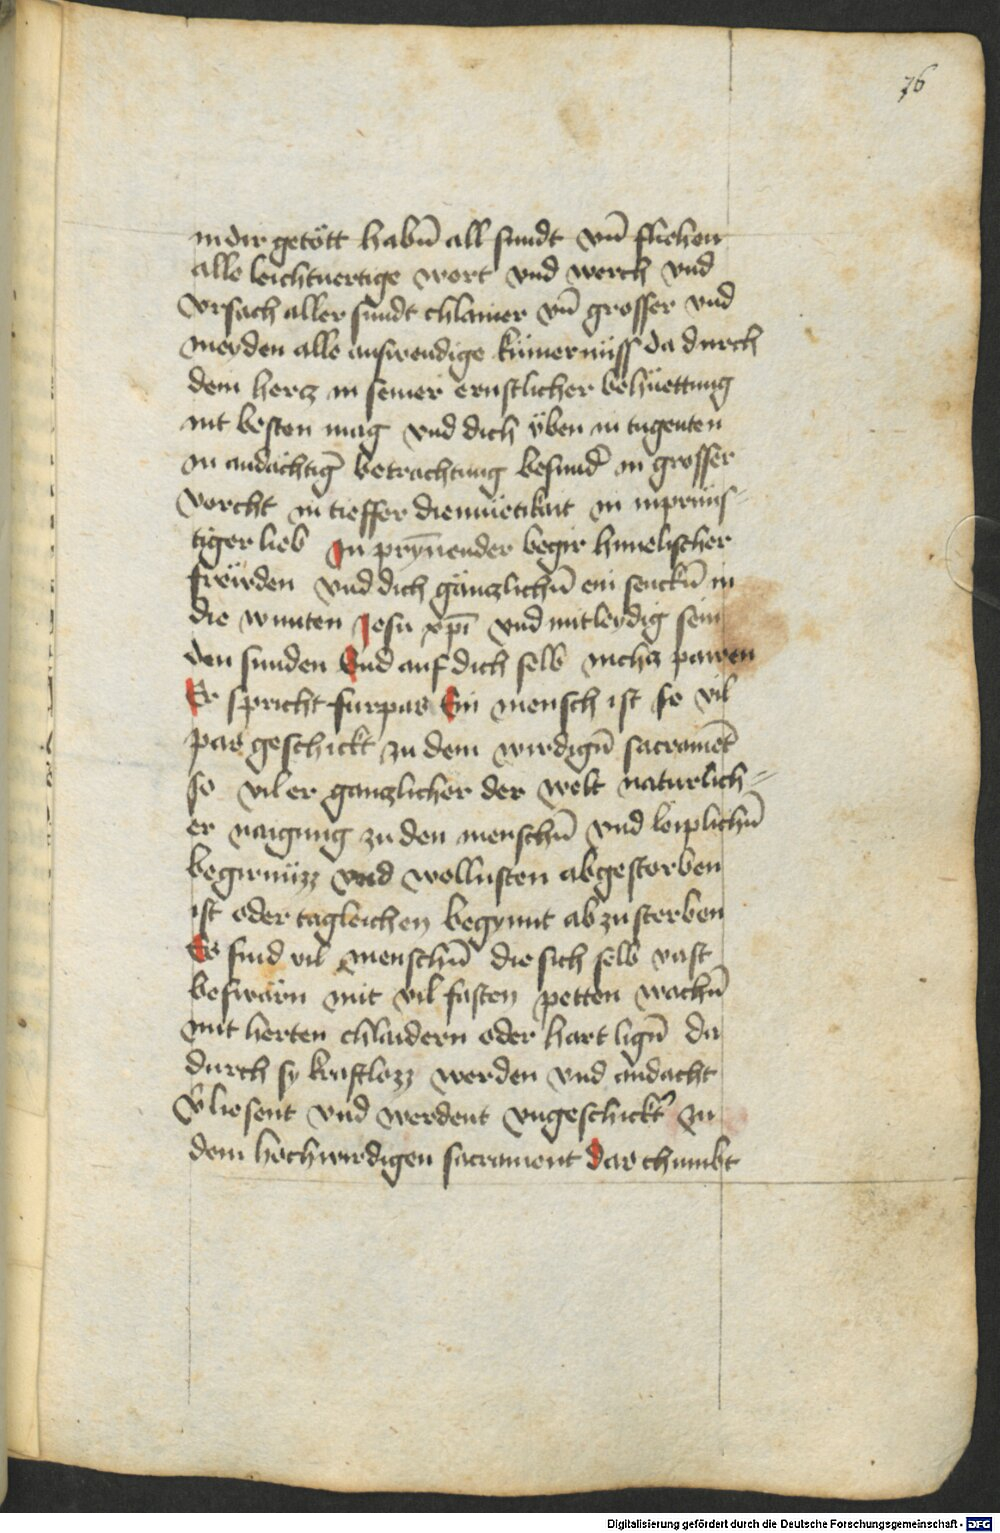 76
in dir getött habn̄ all sundt vn̄ fliehen
alle leichtuertige wort vnd werch vnd
vrsach aller sundt chlainer vn̄ grosser vnd
meyden alle auswendige kümernüss da durch
dein hercz in seiner ernstlicher behüettung
nit besten mag vnd dich üben in tugenten
in andächtiḡ betrachtung besund̄ in grosser
vorcht in tieffer diemüetikait in inprüns-
tiger lieb In pryn̄ender begir himelischer
frewden vnd dich gänczlichn̄ ein senckn̄ in
die wunten Jesu xp̄i vnd mitleydig sein
den sunden Vnd auf dich selb nichcz pawen
Er spricht furpas Ein mensch ist so vil
pas geschickt zu dem wirdign̄ sacramēt
so vil er ganczlicher der welt naturlich=
er naigung zu den menschn̄ vnd leiplichn̄
begirnüzz vnd wollusten abgestorben
ist oder tagleichen begynnt ab zu sterben
Es sind vil menschn̄ die sich selb vast
beswärn mit vil fasten petten wachn̄
mit herten chlaidern oder hart lign̄ da
durch sy kraftlozz werden vnd andacht
v̄liesent vnd werdent vngeschickt zu
dem hochwirdigen sacrament das chumbt
Digitalisierung gefördert durch die Deutsche Forschungsgemeinschaft - DFG